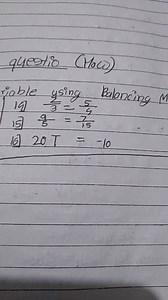 questio (How)
riable using Balancing (M
14) 2/3 = 5/
15) 9/5 = 7/15
16) 20T = -10